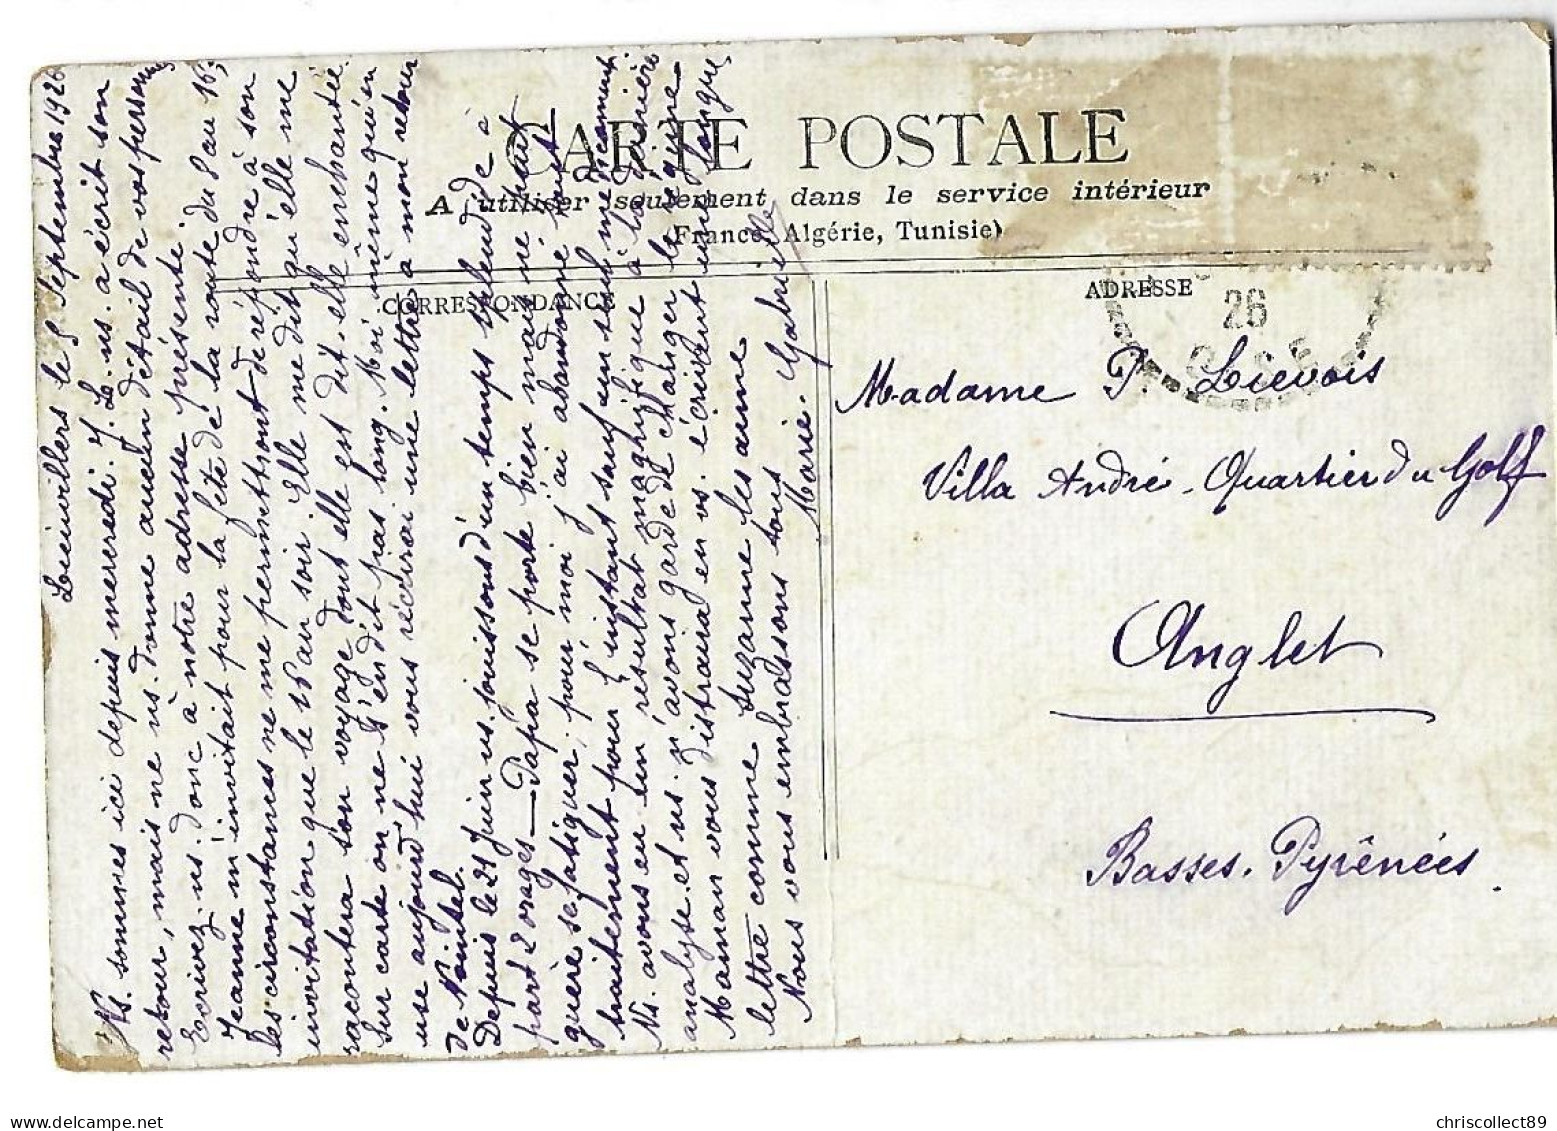 CARTE POSTALE
A utiliser seulement dans le service intérieur
(France, Algérie, Tunisie)
CORRESPONDANCE
ADRESSE
26
Lieuvillers le 8 Septembre 1926
Ns. sommes ici depuis mercredi. J. L. ns. a écrit son
retour, mais ne ns. donne aucun détail de vos personnes
Ecrivez. ns. donc à notre adresse présente.
Jeanne m'invitait pour la fête de la route du 8 au 16;
les circonstances ne me permettront de répondre à son
invitation que le 15 au soir. Elle me dit qu'elle me
racontera son voyage dont elle est dit-elle enchantée.
Sur carte on ne s'en dit pas long. Moi même qui en
use aujourd'hui vous récrirai une lettre à mon retour
de
Depuis le 21 Juin ns. jouissons d'un temps splendide à
part 2 orages — Papa se porte bien mais ne peut
guère se fatiguer, pour moi j'ai abandonné tout
traitement pour l'instant sauf un seul médicament.
Ns. avons eu un résultat magnifique à la dernière
analyse et ns. n'avons garde de changer le régime
Maman vous distraira en vs. écrivant une longue
lettre comme Suzanne les aime
Nous vous embrassons tous
Marie-Gabrielle
Madame P. Lievois
Villa André. Quartier du Golf
Anglet
Basses. Pyrénées.
chriscollect89